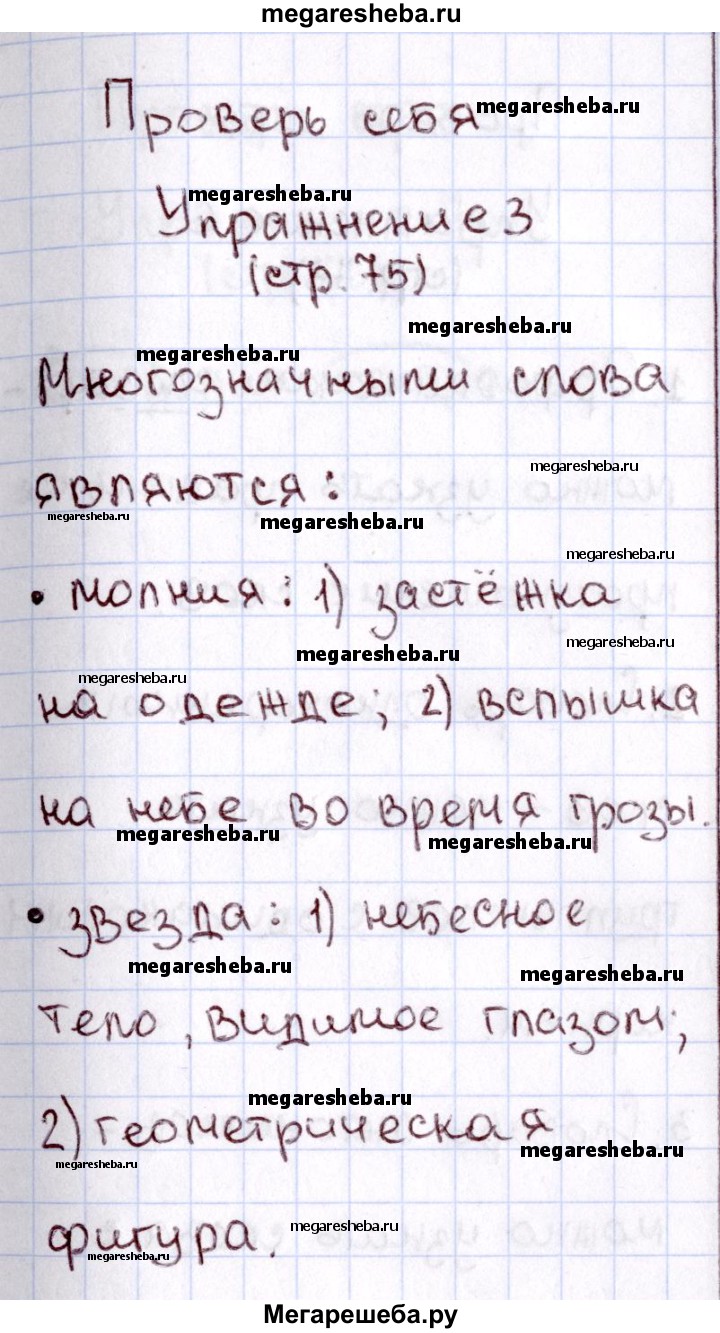 megaresheba.ru
Проверь себя megaresheba.ru
megaresheba.ru
Упражнение 3
(стр. 75)
megaresheba.ru
megaresheba.ru
Многозначными слова
megaresheba.ru
являются:
megaresheba.ru megaresheba.ru
megaresheba.ru
• молния: 1) застёжка
megaresheba.ru
megaresheba.ru
megaresheba.ru
на одежде; 2) вспышка
на небе во время грозы.
megaresheba.ru megaresheba.ru
• звезда: 1) небесное
megaresheba.ru megaresheba.ru
тело, видимое глазом;
megaresheba.ru
2) геометрическая
megaresheba.ru megaresheba.ru
фигура. megaresheba.ru
megaresheba.ru
Мегарешеба.ру